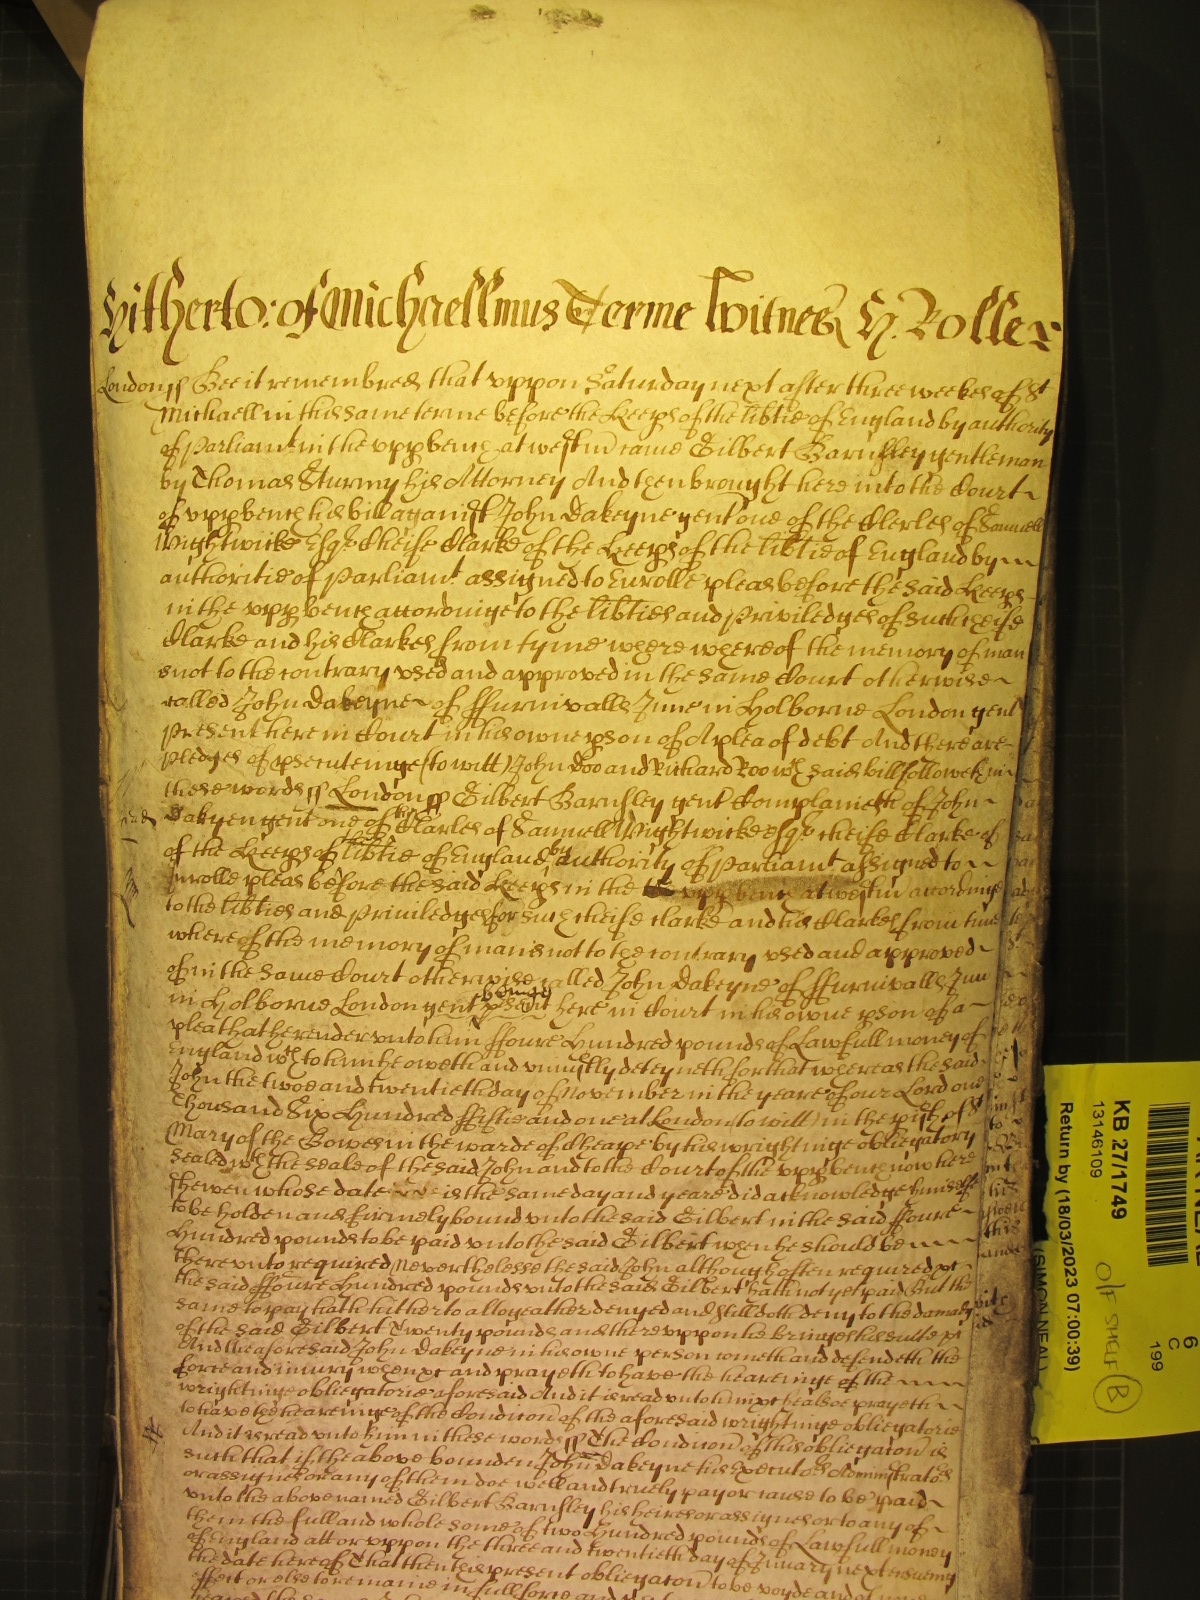 Hitherto: of Michaellmus Terme Witnes H. Rolle
London ss Bee it remembred that vppon Saturday next after three weekes of St
Michaell in this same terme before the Keeps of the libtie of England by authority
of Parliamt in the vpp bench at westm came Gilbert Barnsley gentleman
by Thomas Sturmy his Attorney And then brought here into the Court
of vpp bench his bill against John Dakeyne gent one of the Clerkes of Samuell
Wightwicke Esqr Cheife Clarke of the Keeps of the libtie of England by
authoritie of Parliamt assigned to Enrolle pleas before the said Keeps
in the vpp bench accordinge to the libties and Priviledges of such cheife
Clarke and his Clarkes from tyme where whereof the memory of man
is not to the contrary vsed and approved in the same Court otherwise
called John Dakeyne of ffurnivalls Inne in Holborne London gent
present here in Court in his owne pson of A plea of debt And there are
pledges of psecuteinge (to witt) John Doo and Richard Roo wch said bill followeth in
these words ss London ss Gilbert Barnsley gent Complaineth of John
Dakyen gent one of the Clarkes of Samuell Wightwicke esqr cheife Clarke of
of the Keeps of the libtie of England by authority of Parliamt assigned to
inrolle pleas before the said Keeps in the vpp bench at westm accordinge
to the libties and Priviledges for such cheife clarke and his Clarkes from time
whereof the memory of man is not to the contrary vsed and approved
of in the same Court otherwise called John Dakeyne of ffurnivalls Inn
in Holborne London gent beinge psent here in Court in his owne pson of a
plea that he render vnto him ffoure Hundred pounds of Lawfull money of
England wch to him he oweth and vniustly deteyneth for that whereas the said
John the twoe and twentieth day of November in the yeare of our Lord one
Thousand Six Hundred ffiftie and one at London (to witt) in the pish of St
Mary of the Bowe in the warde of Cheape by his wrightinge obliegatory
sealed wth the seale of the said John and to the Court of the vpp bench now here
shewen whose date is the same day and yeare did acknowledge himselfe
to be holden and firmely bound vnto the said Gilbert in the said ffoure
Hundred pounds to be paid vnto the said Gilbert when he should be
there vnto required Neverthelesse the said John although often required &c
the said ffoure Hundred pounds vnto the said Gilbert hath not yet paid But the
same to pay hath hitherto altogeather denyed and still doth deny to the damage
of the said Gilbert Twenty pounds and there vppon he bringes his suite &c
And the aforesaid John Dakeyne in his owne person cometh and defendeth the
force and iniury when &c and prayeth to have the heareinge of the
wrightinge obliegatorie aforesaid And it is read vnto him &c he alsoe prayeth
to have the heareinge of the Condicon of the aforesaid wrightinge obliegatorie
And it is read vnto him in these words ss The Condicon of this obliegacon is
such that if the above bounden John Dakeyne his Executors Administrators
or assignes or any of them doe well and truely pay or cause to be paid
vnto the above named Gilbert Barnsley his heires or assignes or to any of
them the full and whole some of two Hundred pounds of Lawfull money
of England att or vppon the three and twentieth day of January next ensueing
the date hereof That then this present obliegacon to be voyde and of none
effect or else to remaine in full force and
KB 27/1749
13146109
Return by (18/03/2023 07:00:39)
(SIMON NEAL)
6
C
199
O/F SHELF B